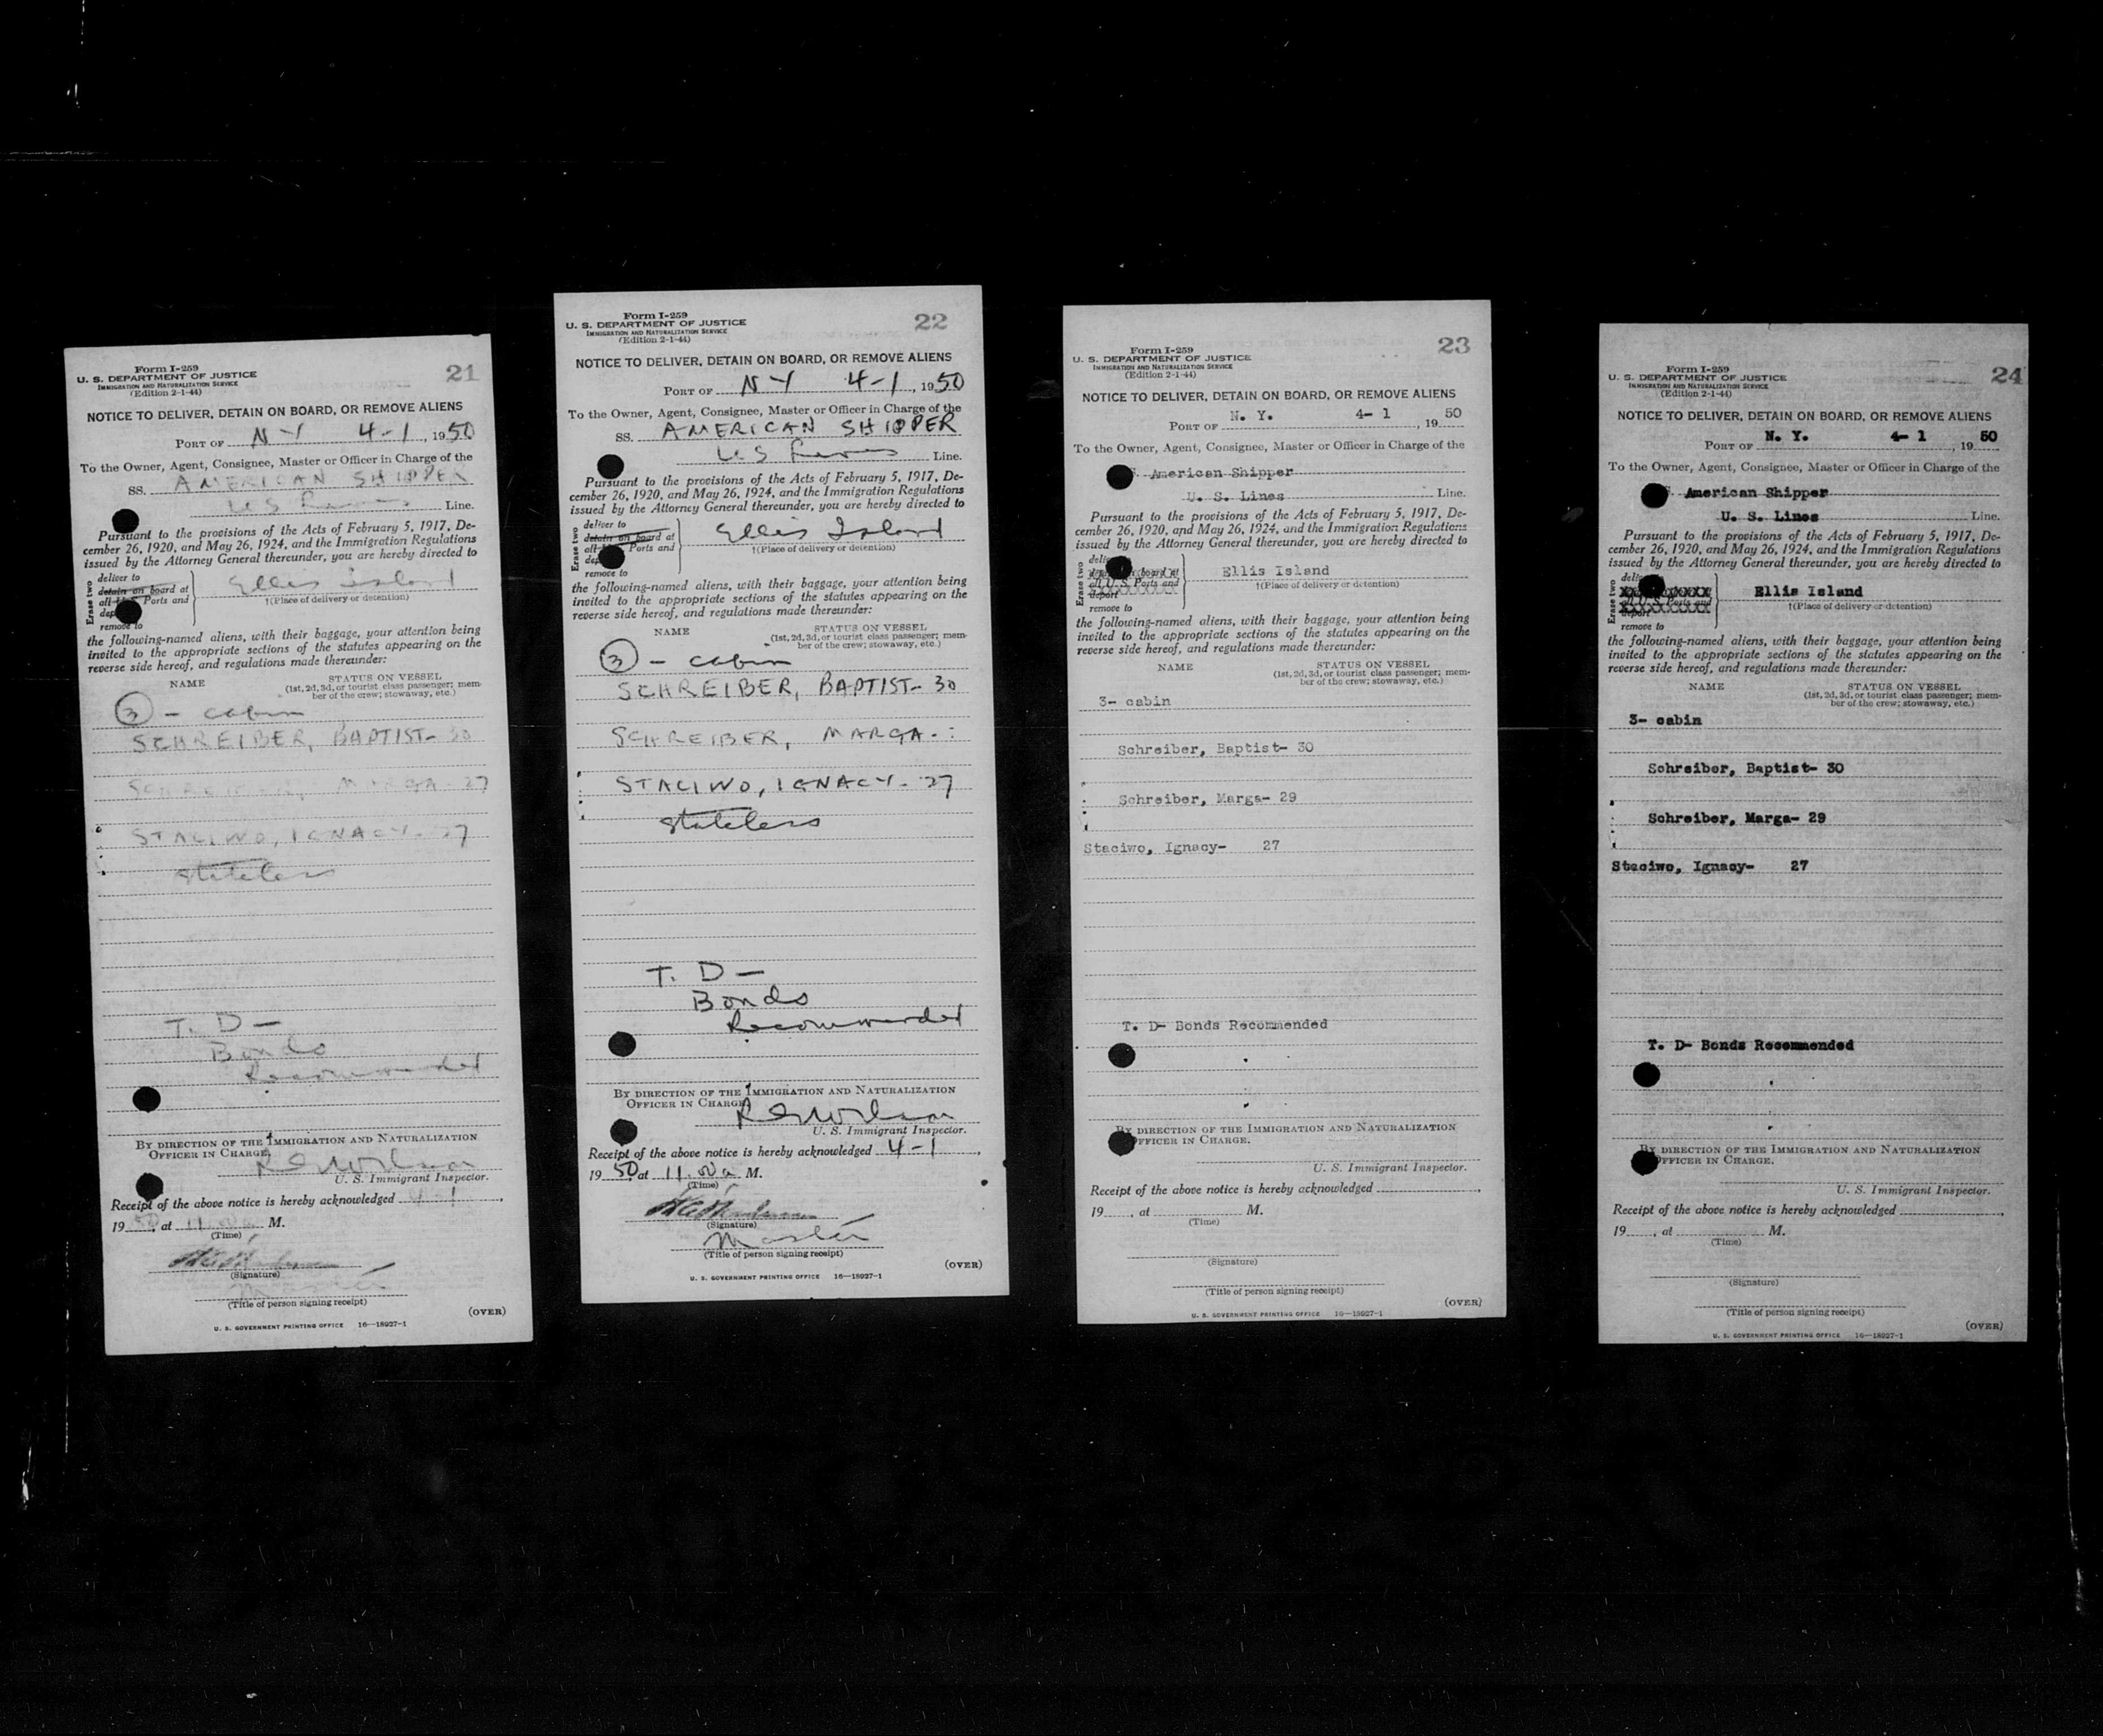 Form I-259
U. S. DEPARTMENT OF JUSTICE
IMMIGRATION AND NATURALIZATION SERVICE
(Edition 2-1-44)
21
NOTICE TO DELIVER, DETAIN ON BOARD, OR REMOVE ALIENS
PORT OF N Y 4-1, 1950
To the Owner, Agent, Consignee, Master or Officer in Charge of the
SS. AMERICAN SHIPPER
U S Lines Line.
Pursuant to the provisions of the Acts of February 5, 1917, De-
cember 26, 1920, and May 26, 1924, and the Immigration Regulations
issued by the Attorney General thereunder, you are hereby directed to
Erase two
deliver to
detain on board at
all Ports and
remove to
Ellis Island
†(Place of delivery or detention)
the following-named aliens, with their baggage, your attention being
invited to the appropriate sections of the statutes appearing on the
reverse side hereof, and regulations made thereunder:
NAME STATUS ON VESSEL
(1st, 2d, 3d, or tourist class passenger; mem-
ber of the crew; stowaway, etc.)
3 - cabin
SCHREIBER, BAPTIST- 30
SCHREIBER, MARGA - 27
STACIWO, IGNACY - 27
stateless
T. D -
Bonds
Recommended
BY DIRECTION OF THE IMMIGRATION AND NATURALIZATION
OFFICER IN CHARGE.
U. S. Immigrant Inspector.
Receipt of the above notice is hereby acknowledged 4-1,
1950, at 11.00a M.
(Time)
(Signature)
Master
(Title of person signing receipt)
(OVER)
U. S. GOVERNMENT PRINTING OFFICE 16—18927-1
Form I-259
U. S. DEPARTMENT OF JUSTICE
IMMIGRATION AND NATURALIZATION SERVICE
(Edition 2-1-44)
22
NOTICE TO DELIVER, DETAIN ON BOARD, OR REMOVE ALIENS
PORT OF N Y 4-1, 1950
To the Owner, Agent, Consignee, Master or Officer in Charge of the
SS. AMERICAN SHIPPER
U S Lines Line.
Pursuant to the provisions of the Acts of February 5, 1917, De-
cember 26, 1920, and May 26, 1924, and the Immigration Regulations
issued by the Attorney General thereunder, you are hereby directed to
Erase two
deliver to
detain on board at
all Ports and
remove to
Ellis Island
†(Place of delivery or detention)
the following-named aliens, with their baggage, your attention being
invited to the appropriate sections of the statutes appearing on the
reverse side hereof, and regulations made thereunder:
NAME STATUS ON VESSEL
(1st, 2d, 3d, or tourist class passenger; mem-
ber of the crew; stowaway, etc.)
3 - cabin
SCHREIBER, BAPTIST- 30
SCHREIBER, MARGA -
STACIWO, IGNACY - 27
stateless
T. D -
Bonds
Recommended
BY DIRECTION OF THE IMMIGRATION AND NATURALIZATION
OFFICER IN CHARGE.
U. S. Immigrant Inspector.
Receipt of the above notice is hereby acknowledged 4-1,
1950, at 11.00a M.
(Time)
(Signature)
Master
(Title of person signing receipt)
(OVER)
U. S. GOVERNMENT PRINTING OFFICE 16—18927-1
Form I-259
U. S. DEPARTMENT OF JUSTICE
IMMIGRATION AND NATURALIZATION SERVICE
(Edition 2-1-44)
23
NOTICE TO DELIVER, DETAIN ON BOARD, OR REMOVE ALIENS
PORT OF N. Y. 4- 1, 19 50
To the Owner, Agent, Consignee, Master or Officer in Charge of the
American Shipper
U. S. Lines Line.
Pursuant to the provisions of the Acts of February 5, 1917, De-
cember 26, 1920, and May 26, 1924, and the Immigration Regulations
issued by the Attorney General thereunder, you are hereby directed to
Erase two
board at
all U. S. Ports and
deport
remove to
Ellis Island
†(Place of delivery or detention)
the following-named aliens, with their baggage, your attention being
invited to the appropriate sections of the statutes appearing on the
reverse side hereof, and regulations made thereunder:
NAME STATUS ON VESSEL
(1st, 2d, 3d, or tourist class passenger; mem-
ber of the crew; stowaway, etc.)
3- cabin
Schreiber, Baptist- 30
Schreiber, Marga- 29
Staciwo, Ignacy- 27
T. D- Bonds Recommended
BY DIRECTION OF THE IMMIGRATION AND NATURALIZATION
OFFICER IN CHARGE.
U. S. Immigrant Inspector.
Receipt of the above notice is hereby acknowledged
19, at M.
(Time)
(Signature)
(Title of person signing receipt)
(OVER)
U. S. GOVERNMENT PRINTING OFFICE 16—18927-1
Form I-259
U. S. DEPARTMENT OF JUSTICE
IMMIGRATION AND NATURALIZATION SERVICE
(Edition 2-1-44)
24
NOTICE TO DELIVER, DETAIN ON BOARD, OR REMOVE ALIENS
PORT OF N. Y. 4- 1, 19 50
To the Owner, Agent, Consignee, Master or Officer in Charge of the
American Shipper
U. S. Lines Line.
Pursuant to the provisions of the Acts of February 5, 1917, De-
cember 26, 1920, and May 26, 1924, and the Immigration Regulations
issued by the Attorney General thereunder, you are hereby directed to
Erase two
deport
remove to
Ellis Island
†(Place of delivery or detention)
the following-named aliens, with their baggage, your attention being
invited to the appropriate sections of the statutes appearing on the
reverse side hereof, and regulations made thereunder:
NAME STATUS ON VESSEL
(1st, 2d, 3d, or tourist class passenger; mem-
ber of the crew; stowaway, etc.)
3- cabin
Schreiber, Baptist- 30
Schreiber, Marga- 29
Staciwo, Ignacy- 27
T. D- Bonds Recommended
BY DIRECTION OF THE IMMIGRATION AND NATURALIZATION
OFFICER IN CHARGE.
U. S. Immigrant Inspector.
Receipt of the above notice is hereby acknowledged
19, at M.
(Time)
(Signature)
(Title of person signing receipt)
(OVER)
U. S. GOVERNMENT PRINTING OFFICE 16—18927-1